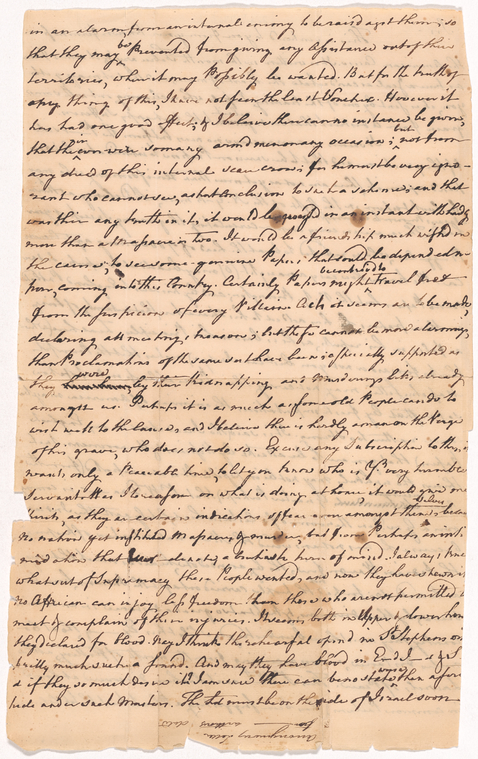 in an alarm from an internal enemy to be raised agst them; so
that they may be Prevented from giving any Assistance out of their
territories, where it may Possibly be wanted. But for the truth of
any thing of this, I have not seen the least Voucher. However it
has had one good effect, & I believe there can no instance be given,
that there were so many armed men on any occasion; but not from
any dread of this internal scare crow; for he must be very igno-
rant who cannot see, as that Conclusion to such a scheme; and that
was there any truth in it, it would be in an instant with hardly
more than a Massacre or two. It would be a friendship much wished in
the cause, to see some genuine Papers that could be depended on
from, coming into this Country. Certainly Papers might be contrived to Travel free
from the suspicion of every Villain. Acts it seems are to be made,
declaring all meeting, treason; but these cannot be more alarming,
than Proclamations of the same sort have been especially supported as
they were, by their Kidnapping and Murdering &c already
amongst us. Perhaps it is as much as some old People can do to
wish well to the cause, and I believe there is hardly a man on the Verge
of his grave, who does not do so. Excuse my Subscription to this, it
wants only a Peaceable time, to let you know who is Yr very humble
Servant. Was I to reason on what is doing at home, it would give me
spirits, as they are certain indications of fear even amongst themselves, because
no nation yet instituted Massacres
mind a tion that denotes a contrary turn of mind. I always knew
what sort of Supremacy these People wanted, and now they have shewn it
no African can enjoy less freedom than those who are not permitted to
meet & complain of their injuries. It seems both in Upper & down house
they declared for blood. Nay I think the rehearsal of it in St Stephens on
briefly much such a sound. And may they have blood in End
if they so much desire it. I am sure there can be no state worse than a
under such Masters. The Lord must be on the side of Israel soon
Anonymous
without date